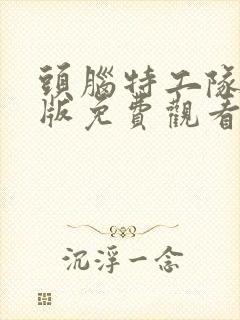 頭腦特工隊
版免費觀看
沉浮一念